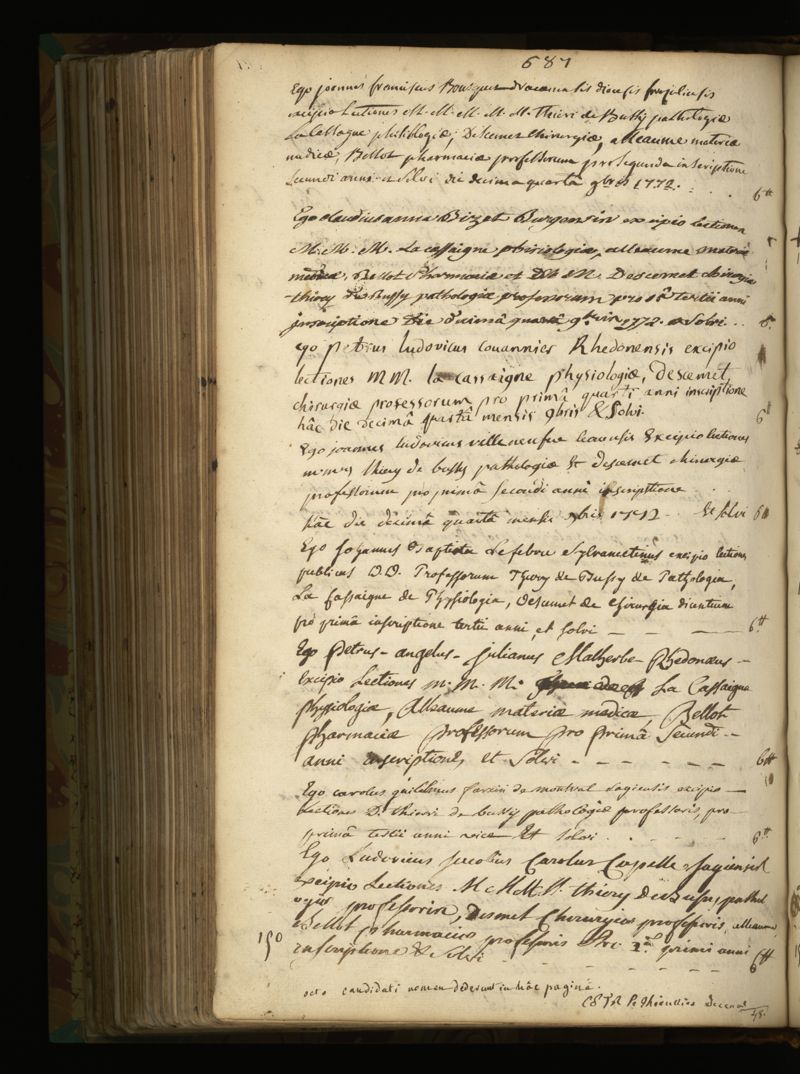 687
Ego joannes franciscus Bousquet diocesis
excipio Lectiones M. M. M. M. M. Thieri de Bussy pathologiæ
La Cassagne phisiologiæ, Descemet chirurgiæ, alleaume materiæ
medicæ, Bellot pharmaciæ professorum pro Segunda inscriptione
secundi anni et solvi die decima quartâ 9bris 1772.
6tt
Ego claudius anna Bizet excipio lectiones
M. M. M. La cassaigne phisiologiæ, alleaume materiæ
medicæ, Bellot Pharmaciæ et Descemet chirurgiæ
thiery De Bussy pathologiæ professorum pro 1â tertii anni
inscriptione Die decimâ quartâ 1772. et Solvi ..
6.
ego petrus ludovicus couannier Rhedonensis excipio
lectiones MM. la cassaigne physiologiæ, descemet
chirurgiæ professorum pro primâ quarti anni inscriptione
hâc die decimâ quartâ mensis 9bris & Solvi.
6
Ego joannes ludovicus villeneufve excipio lectiones
thiery de bussy pathologiæ & descemet chirurgiæ
professorum pro primâ secundi anni inscriptione
hâc die decimâ quartâ mensis 9bris 1772 .. et solvi
6tt
Ego Johannes Baptista Lefebvre Sylvanectinus excipio lectiones
publicas D.D. Professorum Thiery de Bussy de Pathologia,
La Cassaigne de Physiologia, Descemet de chirurgia
pro primâ inscriptione tertii anni, et solvi — — —
6tt
Ego Petrus - angelus - julianus Malherbe - Rhedonæus -
excipio Lectiones m. M. M. La Cassaigne
physiologiæ, Alleaume materiæ medicæ, Bellot
pharmaciæ professorum pro primâ secundi -
anni inscriptione, et solvi - - - - - -
6tt
Ego carolus guilelmus de montval excipio -
Lectiones D. thierri de bussy pathologiæ professoris, pro
primâ tertii anni vice & solvi . . . .
6tt
Ego Ludovicus Jacobus Carolus Capelle Sagiensis
excipio Lectiones M. M. M. thiery De Bussy,
professoris, Desmet Chirurgiæ professoris, alleaume
Bellot Pharmaciæ professoris pro 1â primi anni
inscriptione & Solvi - - - - - -
6tt
150
octo candidati nomen dederunt in hâc paginâ.
Le Thieullier Decanus
48.